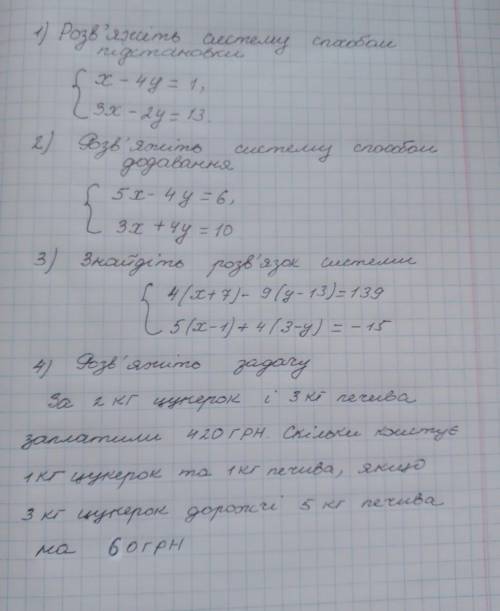 1) Розв'яжіть систему способом
підстановки
x - 4y = 1,
3x - 2y = 13.
2) Розв'яжіть систему способом
додавання
5x - 4y = 6,
3x + 4y = 10
3) Знайдіть розв'язок системи
4(x+7) - 9(y-13) = 139
5(x-1) + 4(3-y) = -15
4) Розв'яжіть задачу
За 2 кг цукерок і 3 кг печива
заплатили 420 грн. Скільки коштує
1 кг цукерок та 1 кг печива, якщо
3 кг цукерок дорожчі 5 кг печива
на 60 грн